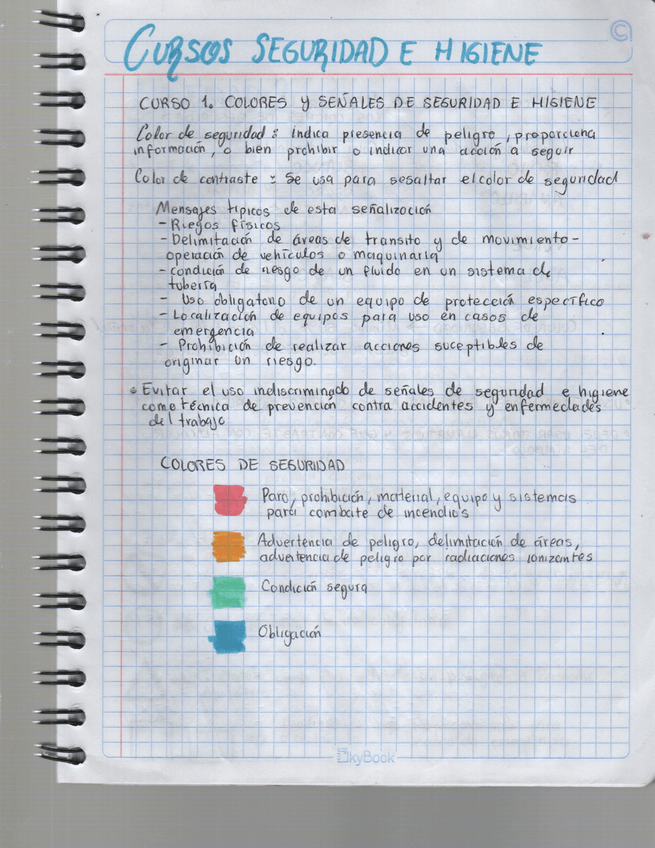 CURSOS SEGURIDAD E HIGIENE
CURSO 1. COLORES Y SEÑALES DE SEGURIDAD E HIGIENE
Color de seguridad: indica presencia de peligro, proporciona
información, o bien prohibir o indicar una acción a seguir
Color de contraste: Se usa para sesaltar el color de seguridad
Mensajes típicos de esta señalización
- Riegos físicos
- Delimitación de áreas de transito y de movimiento -
operación de vehículos o maquinaria
- condición de riesgo de un fluido en un sistema de
tuberia
- Uso obligatorio de un equipo de protección específico
- Localización de equipos para uso en casos de
emergencia
- Prohibición de realizar acciones suceptibles de
originar un riesgo.
• Evitar el uso indiscriminado de señales de seguridad e higiene
como técnica de prevención contra accidentes y enfermedades
del trabajo
COLORES DE SEGURIDAD
Paro, prohibición, material, equipo y sistemas
para combate de incendios
Advertencia de peligro, delimitación de áreas,
advertencia de peligro por radiaciones ionizantes
Condición segura
Obligación
SkyBook